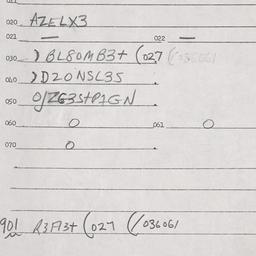 020 AZELX3
021 — 022 —
030 ) BL80MB3+ (027 (036061
040 )D20NSL35
050 O/ZG3S+P1GN
060 O 061 O
070 O
901 R3F13+ (027 (/036061